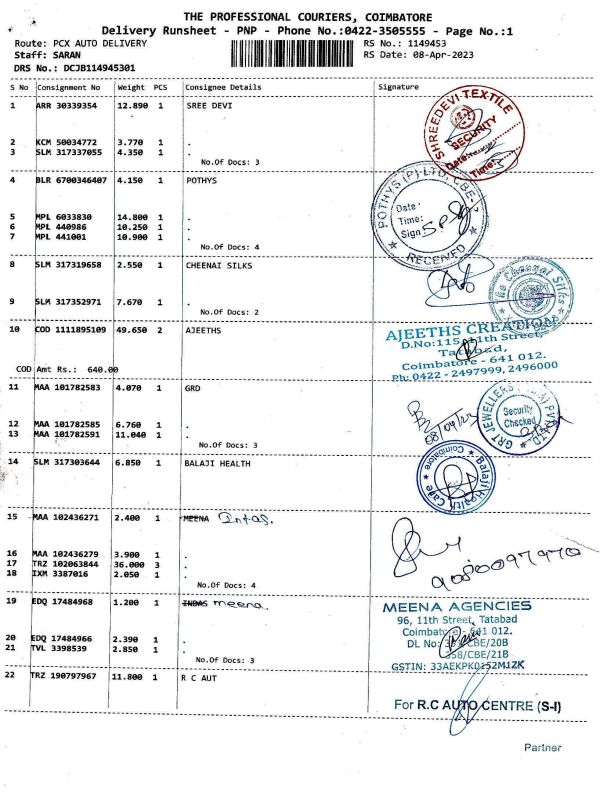 THE PROFESSIONAL COURIERS, COIMBATORE
Delivery Runsheet - PNP - Phone No.:0422-3505555 - Page No.:1
Route: PCX AUTO DELIVERY RS No.: 1149453
Staff: SARAN RS Date: 08-Apr-2023
DRS No.: DCJB114945301
S No Consignment No Weight PCS Consignee Details Signature
1 ARR 30339354 12.890 1 SREE DEVI
SHREEDEVI TEXTILE
SECURITY
Date:
Time:
2 KCM 50034772 3.770 1 .
3 SLM 317337055 4.350 1 .
No.Of Docs: 3
4 BLR 6700346407 4.150 1 POTHYS
POTHYS (P) LTD, CBE-
Date:
Time:
Sign
RECEIVED
5 MPL 6033830 14.800 1 .
6 MPL 440986 10.250 1 .
7 MPL 441001 10.900 1 .
No.Of Docs: 4
8 SLM 317319658 2.550 1 CHEENAI SILKS
The Chennai Silks
9 SLM 317352971 7.670 1 .
No.Of Docs: 2
10 COD 1111895109 49.650 2 AJEETHS
AJEETHS CREATION
D.No:115, 11th Street,
Tatabad,
Coimbatore - 641 012.
Ph: 0422 - 2497999, 2496000
COD Amt Rs.: 640.00
11 MAA 101782583 4.070 1 GRD
GRT JEWELLERS
PVT LTD
Security
Checked
08/04/23
12 MAA 101782585 6.760 1 .
13 MAA 101782591 11.040 1 .
No.Of Docs: 3
14 SLM 317303644 6.850 1 BALAJI HEALTH
Balaji Health Care
Coimbatore
15 MAA 102436271 2.400 1 MEENA Intas.
16 MAA 102436279 3.900 1 .
17 TRZ 102063844 36.000 3 .
18 IXM 3387016 2.050 1 .
No.Of Docs: 4
19 EDQ 17484968 1.200 1 meena.
MEENA AGENCIES
96, 11th Street, Tatabad
Coimbatore - 641 012.
DL No: /CBE/20B
358/CBE/21B
GSTIN: 33AEKPK0152M1ZK
20 EDQ 17484966 2.390 1 .
21 TVL 3398539 2.850 1 .
No.Of Docs: 3
22 TRZ 190797967 11.800 1 R C AUT
For R.C AUTO CENTRE (S-I)
Partner